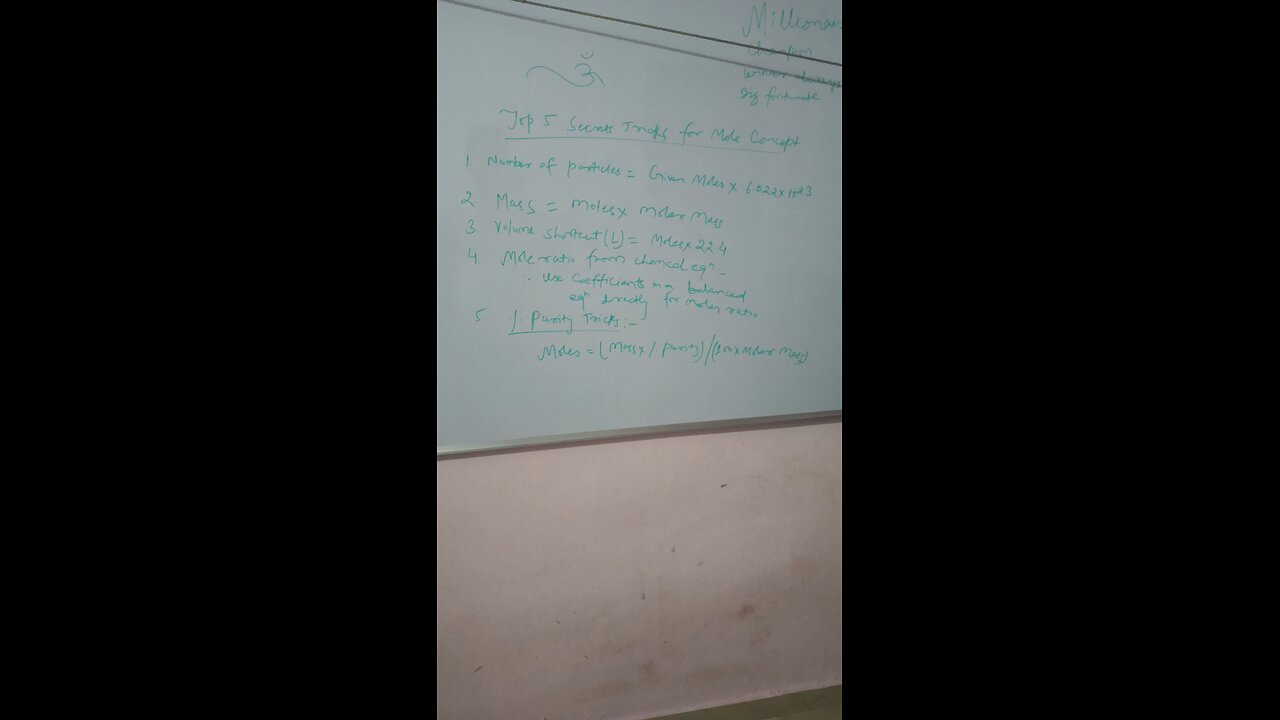 Millionai
champion
winner always
Big fortunate
ॐ
Top 5 Secrets Tricks for Mole Concept
1. Number of particles = Given Moles x 6.022x1023
2. Mass = Moles x Molar Mass
3. Volume shortcut (L) = Moles x 22.4
4. Mole ratio from chemical eqn -
:- Use Coefficients in a balanced
eqn directly for moles ratio
5. % Purity Tricks :-
Moles = (Mass x % purity) / (100 x Molar Mass)